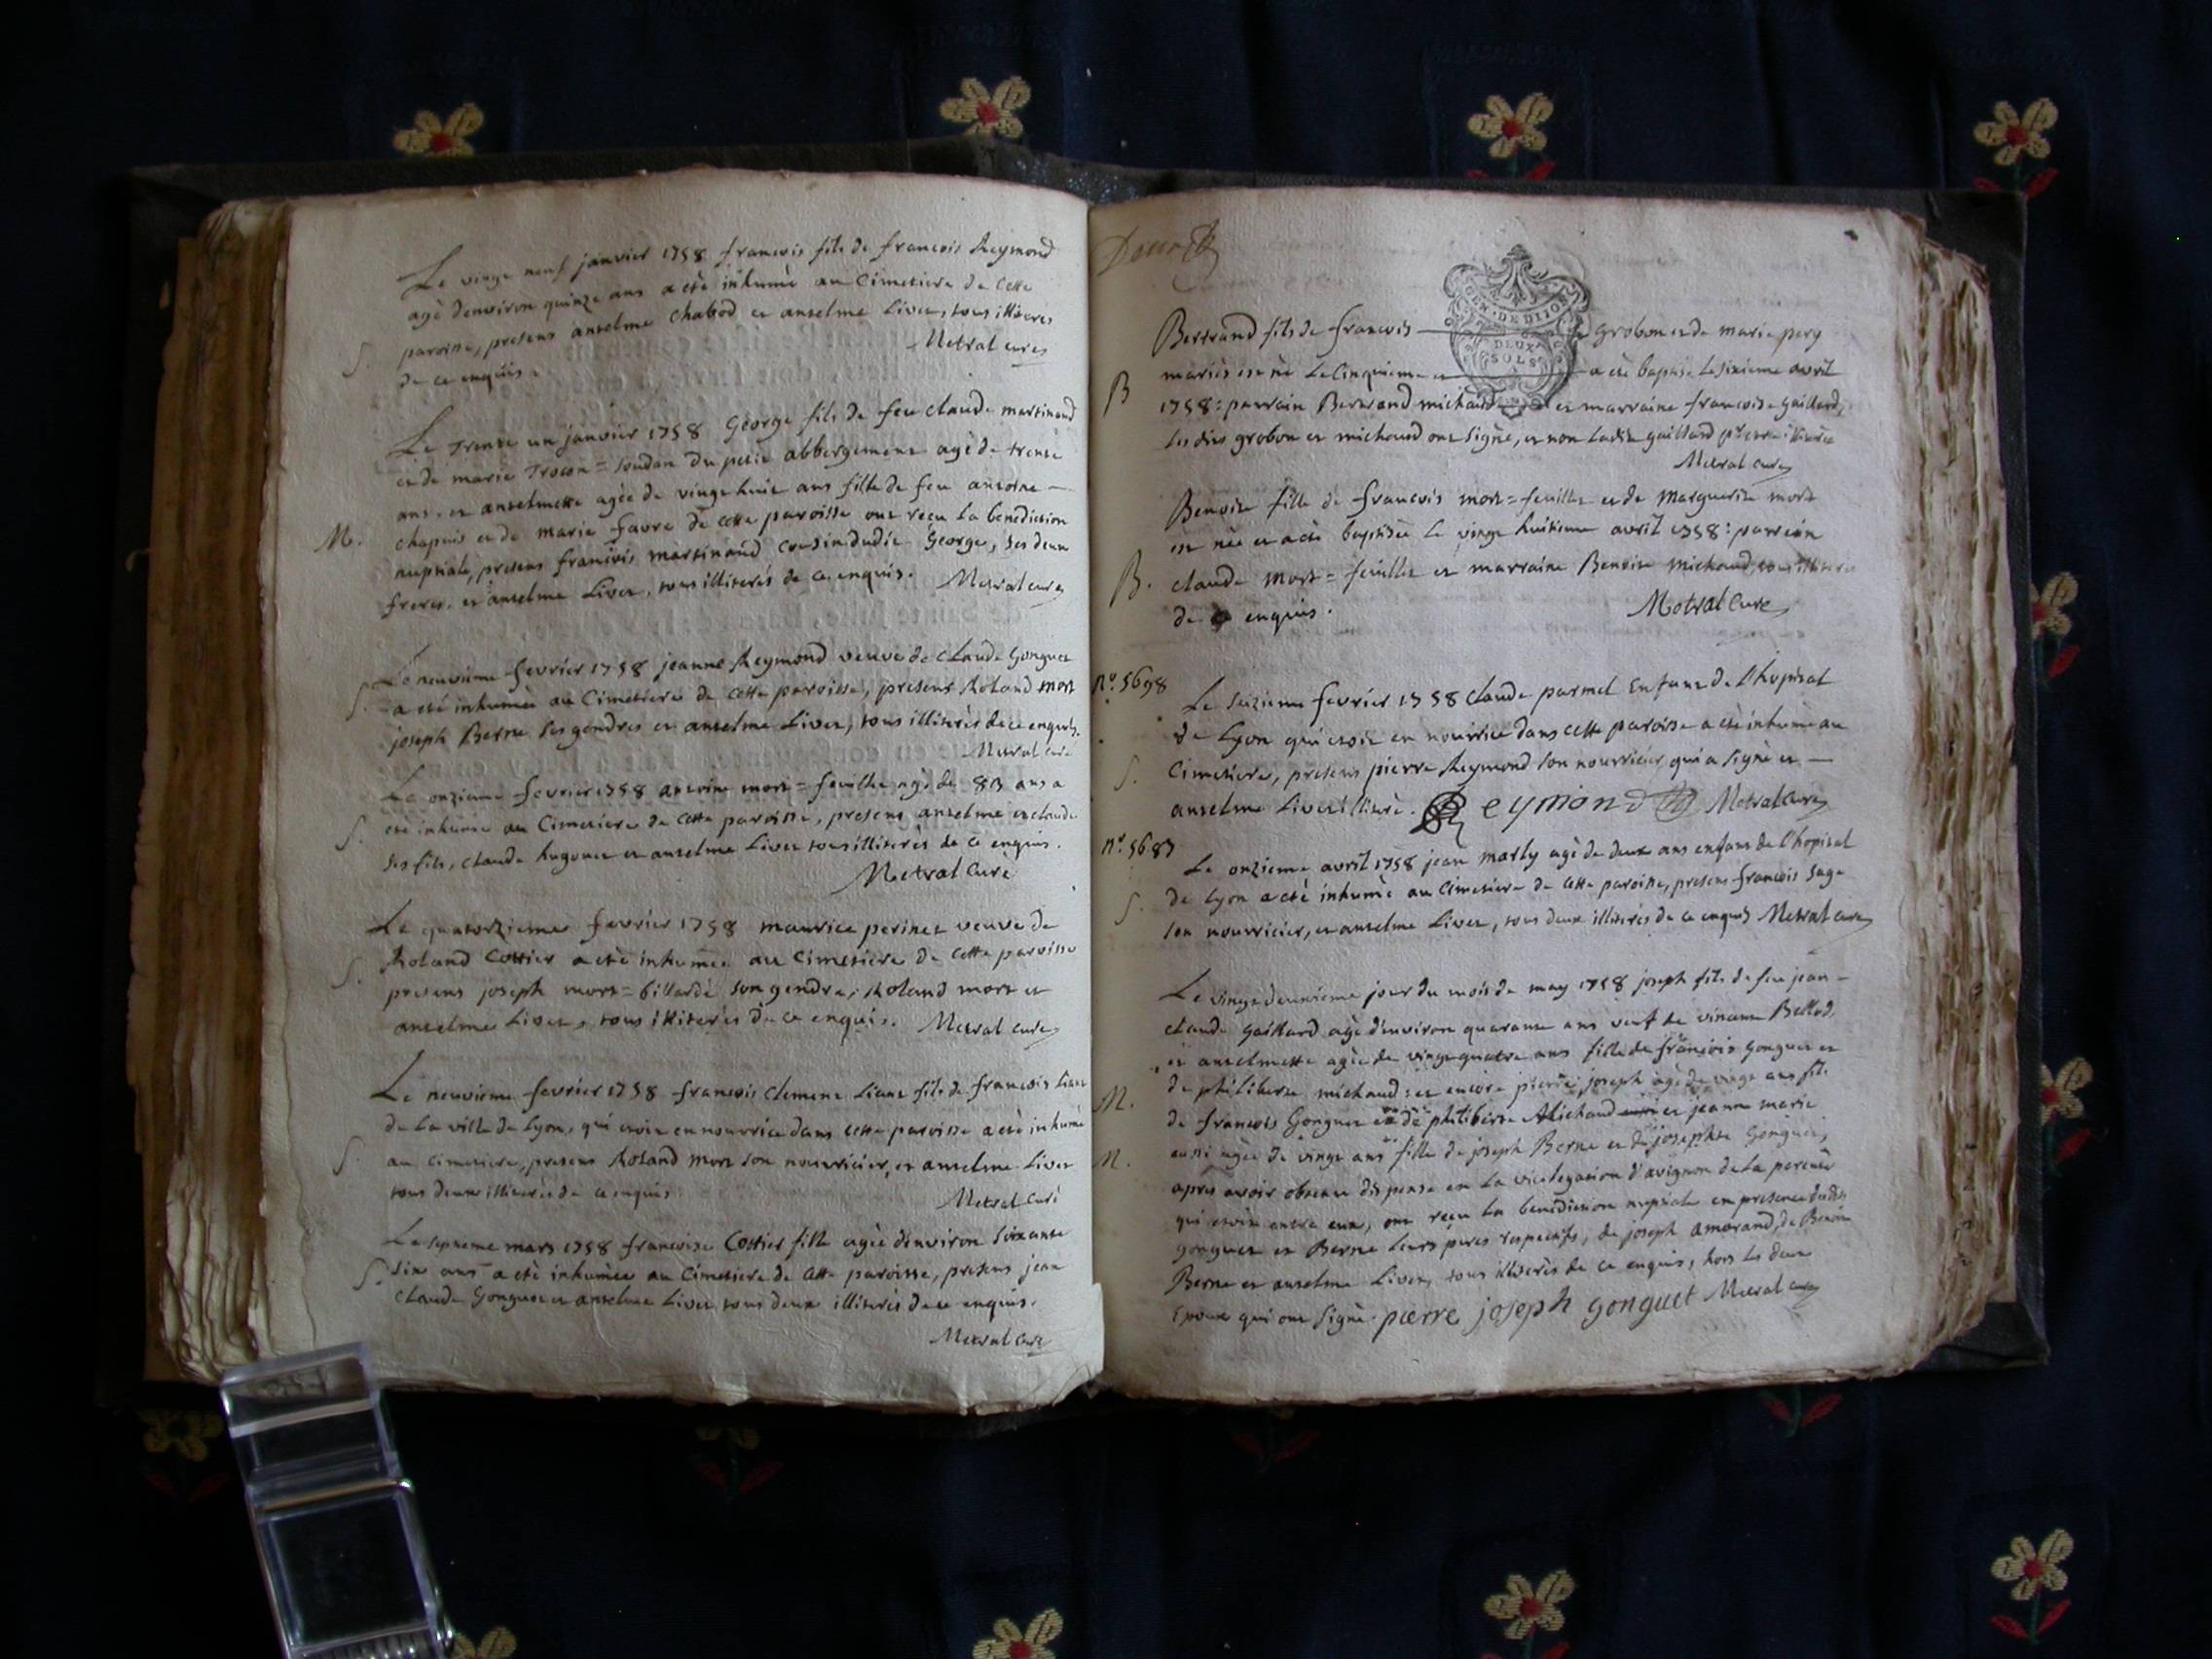 Le vingt neuf janvier 1758 francois fils de francois Reymond
agé denviron quinze ans a eté inhumé au Cimetiere de cette
paroisse, presens anselme Chabod et anselme Livet, tous illiteres
S.
de ce enquis.
Metral curé
Le Trente un janvier 1758 George fils de feu claude martinand
et de marie Trocon = soudan du petit abbergement agé de trente
ans, et anselmette agée de vingt huit ans fille de feu antoine
M.
chapuis et de marie favre de cette paroisse ont reçu la benediction
nuptiale, presens francois martinand cousin dudit George, ses deux
freres, et anselme Livet, tous illiterés de ce enquis.
Metral curé
Le neuvieme fevrier 1758 jeanne Reymond veuve de claude Gonguet
S.
a eté inhumée au Cimetiere de cette paroisse, presens Roland mort
joseph Berne ses gendres et anselme Livet, tous illiterés de ce enquis.
Metral curé
Le onzieme fevrier 1758 antoine mort = feuillet agé de 83 ans a
S.
eté inhumé au Cimetiere de cette paroisse, presens anselme et claude
ses fils, claude hugonet et anselme Livet tous illiterés de ce enquis.
Metral Curé
Le quatorzieme fevrier 1758 maurice perinet veuve de
Roland Cottier a eté inhumée au Cimetiere de cette paroisse
S.
presens joseph mort = billardé son gendre, Roland mort et
anselme Livet, tous illiterés de ce enquis.
Metral curé
Le neuvieme fevrier 1758 francois Clement Liant fils de francois Liant
de la ville de Lyon, qui etoit en nourrice dans cette paroisse a eté inhumé
S.
au Cimetiere, presens Roland mort son nourricier, et anselme Livet
tous deux illiterés de ce enquis
Metral Curé
Le septieme mars 1758 francoise Cottier fille agée d'environ soixante
S.
six ans a eté inhumée au Cimetiere de cette paroisse, presens jean
Claude Gonguet et anselme Livet tous deux illiterés de ce enquis.
Metral curé
GEN. DE DIJON
DEUX
SOLS
Bertrand fils de francois grobon et de marie pery
mariés est né Le Cinquieme et a eté baptisé le sixieme avril
B
1758: parrain Bertrand michaud et marraine francoise gaillard,
les dits grobon et michaud ont signé, et non ladite gaillard pr etre illiterée
Metral curé
Benoite fille de francois mort = feuillet et de Marguerite mort
est née et a eté baptisée le vingt huitieme avril 1758: parrein
B.
claude mort = feuillet et marraine Benoite michaud, tous illiterés
de ce enquis.
Metral Curé
n°. 5698
Le seizieme fevrier 1758 claude parmel Enfant de l'hopital
de Lyon qui etoit en nourrice dans cette paroisse a eté inhumé au
S.
Cimetiere, presens pierre Reymond son nourricier qui a signé et
anselme Livet illiteré. Reymond Metral curé
n°. 5683
Le onzieme avril 1758 jean marly agé de deux ans enfant de l'hopital
S.
de Lyon a eté inhumé au Cimetiere de cette paroisse, presens francois sage
son nourricier, et anselme Livet, tous deux illiterés de ce enquis Metral curé
Le vingt deuxieme jour du mois de may 1758 joseph fils de feu jean
claude gaillard agé d'environ quarante ans veuf de vincent Ballod,
et anselmette agée de vingt quatre ans fille de francois Gonguet et
de philiberte michaud: et encore pierre joseph agé de vingt ans fils
M.
de francois Gonguet et de philiberte Michaud et jeanne marie
aussi agée de vingt ans fille de joseph Berne et de josephte Gonguet,
M.
apres avoir obtenu dispense en la vicelegation d'avignon de la parenté
qui etoit entre eux, ont reçu la benediction nuptiale en presence desdits
gonguet et Berne leurs peres respectifs, de joseph amorand, de Benoit
Berne et anselme Livet, tous illiterés de ce enquis, hors les deux
Epoux qui ont signé. pierre joseph gonguet Metral curé